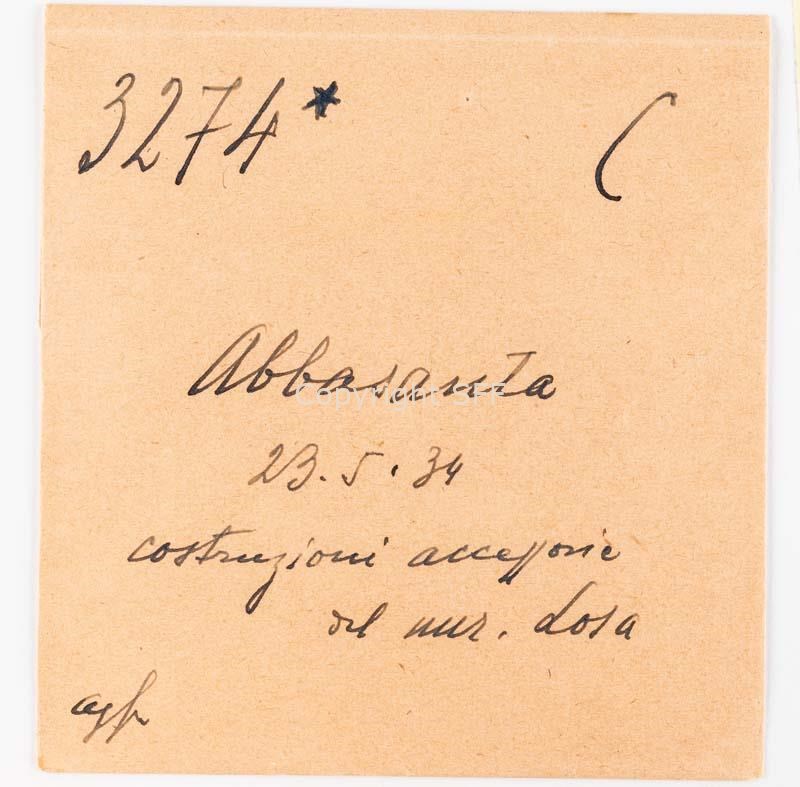 3274* C
Abbasanta
Copyright SFF
23.5.34
costruzioni accessorie
del nur. Losa
agfa